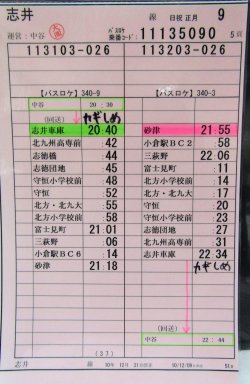 志井 線 日祝 正月 9
運営:中谷 バスロケ 乗番コード: 11135090 5頁
113103-026 113203-026
【バスロケ】340-9 【バスロケ】340-3
中谷 20:30
(回送) カギしめ
志井車庫 20:40 砂津 21:55
北九州高専前 :42 小倉駅BC2 :58
志徳橋 :44 三萩野 22:06
志徳団地 :45 富士見町 :11
守恒小学校前 :48 北方・北九大 :14
守恒 :52 北方 :17
北方・北九大 :55 守恒 :20
北方 :58 守恒小学校前 :23
富士見町 21:01 志徳団地 :27
三萩野 :06 北九州高専前 :31
小倉駅BC6 :14 志井車庫 22:34
砂津 21:18 カギしめ
(回送)
中谷 22:44
(37)
志井 線